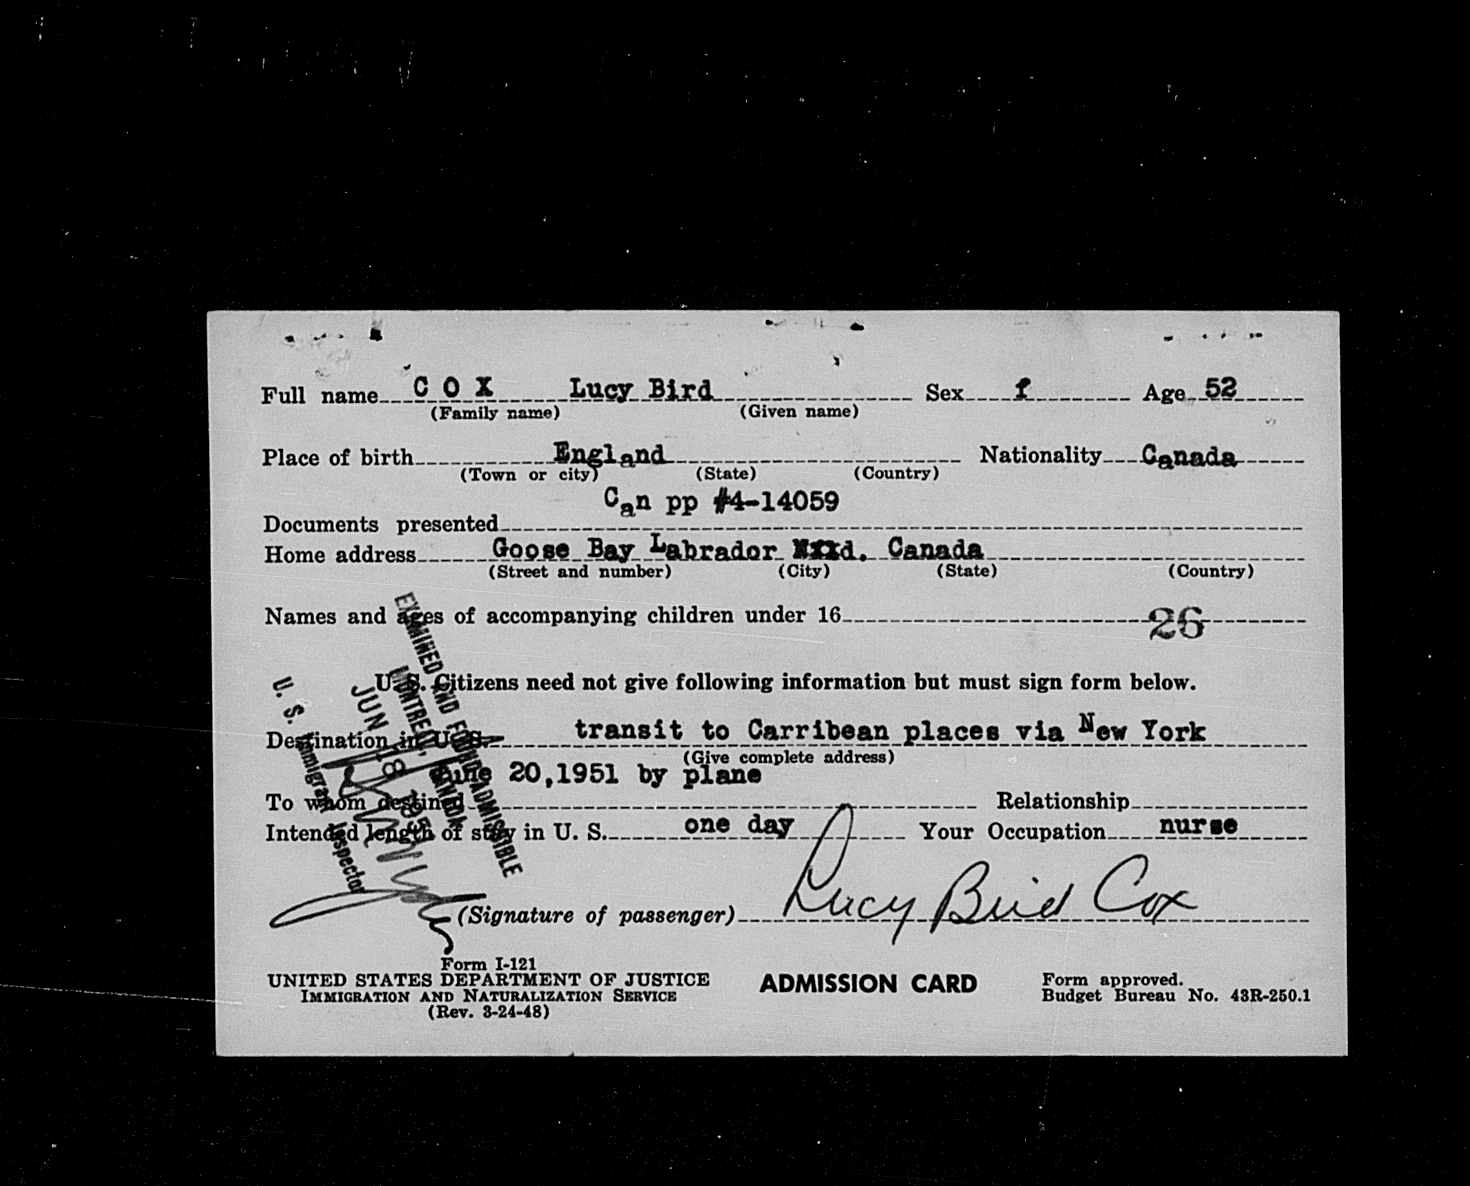 Full name COX Lucy Bird Sex f Age 52
(Family name) (Given name)
Place of birth England Nationality Canada
(Town or city) (State) (Country)
Can pp #4-14059
Documents presented
Home address Goose Bay Labrador Canada
(Street and number) (City) (State) (Country)
Names and ages of accompanying children under 16 26
U.S. Citizens need not give following information but must sign form below.
Destination in U.S. transit to Carribean places via New York
(Give complete address)
June 20,1951 by plane
To whom destined Relationship
Intended length of stay in U. S. one day Your Occupation nurse
EXAMINED AND FOUND ADMISSIBLE
MONTREAL, CANADA
JUN 18 1951
U. S. Immigrant Inspector
(Signature of passenger) Lucy Bird Cox
Form I-121
UNITED STATES DEPARTMENT OF JUSTICE
IMMIGRATION AND NATURALIZATION SERVICE
(Rev. 3-24-48)
ADMISSION CARD
Form approved.
Budget Bureau No. 43R-250.1